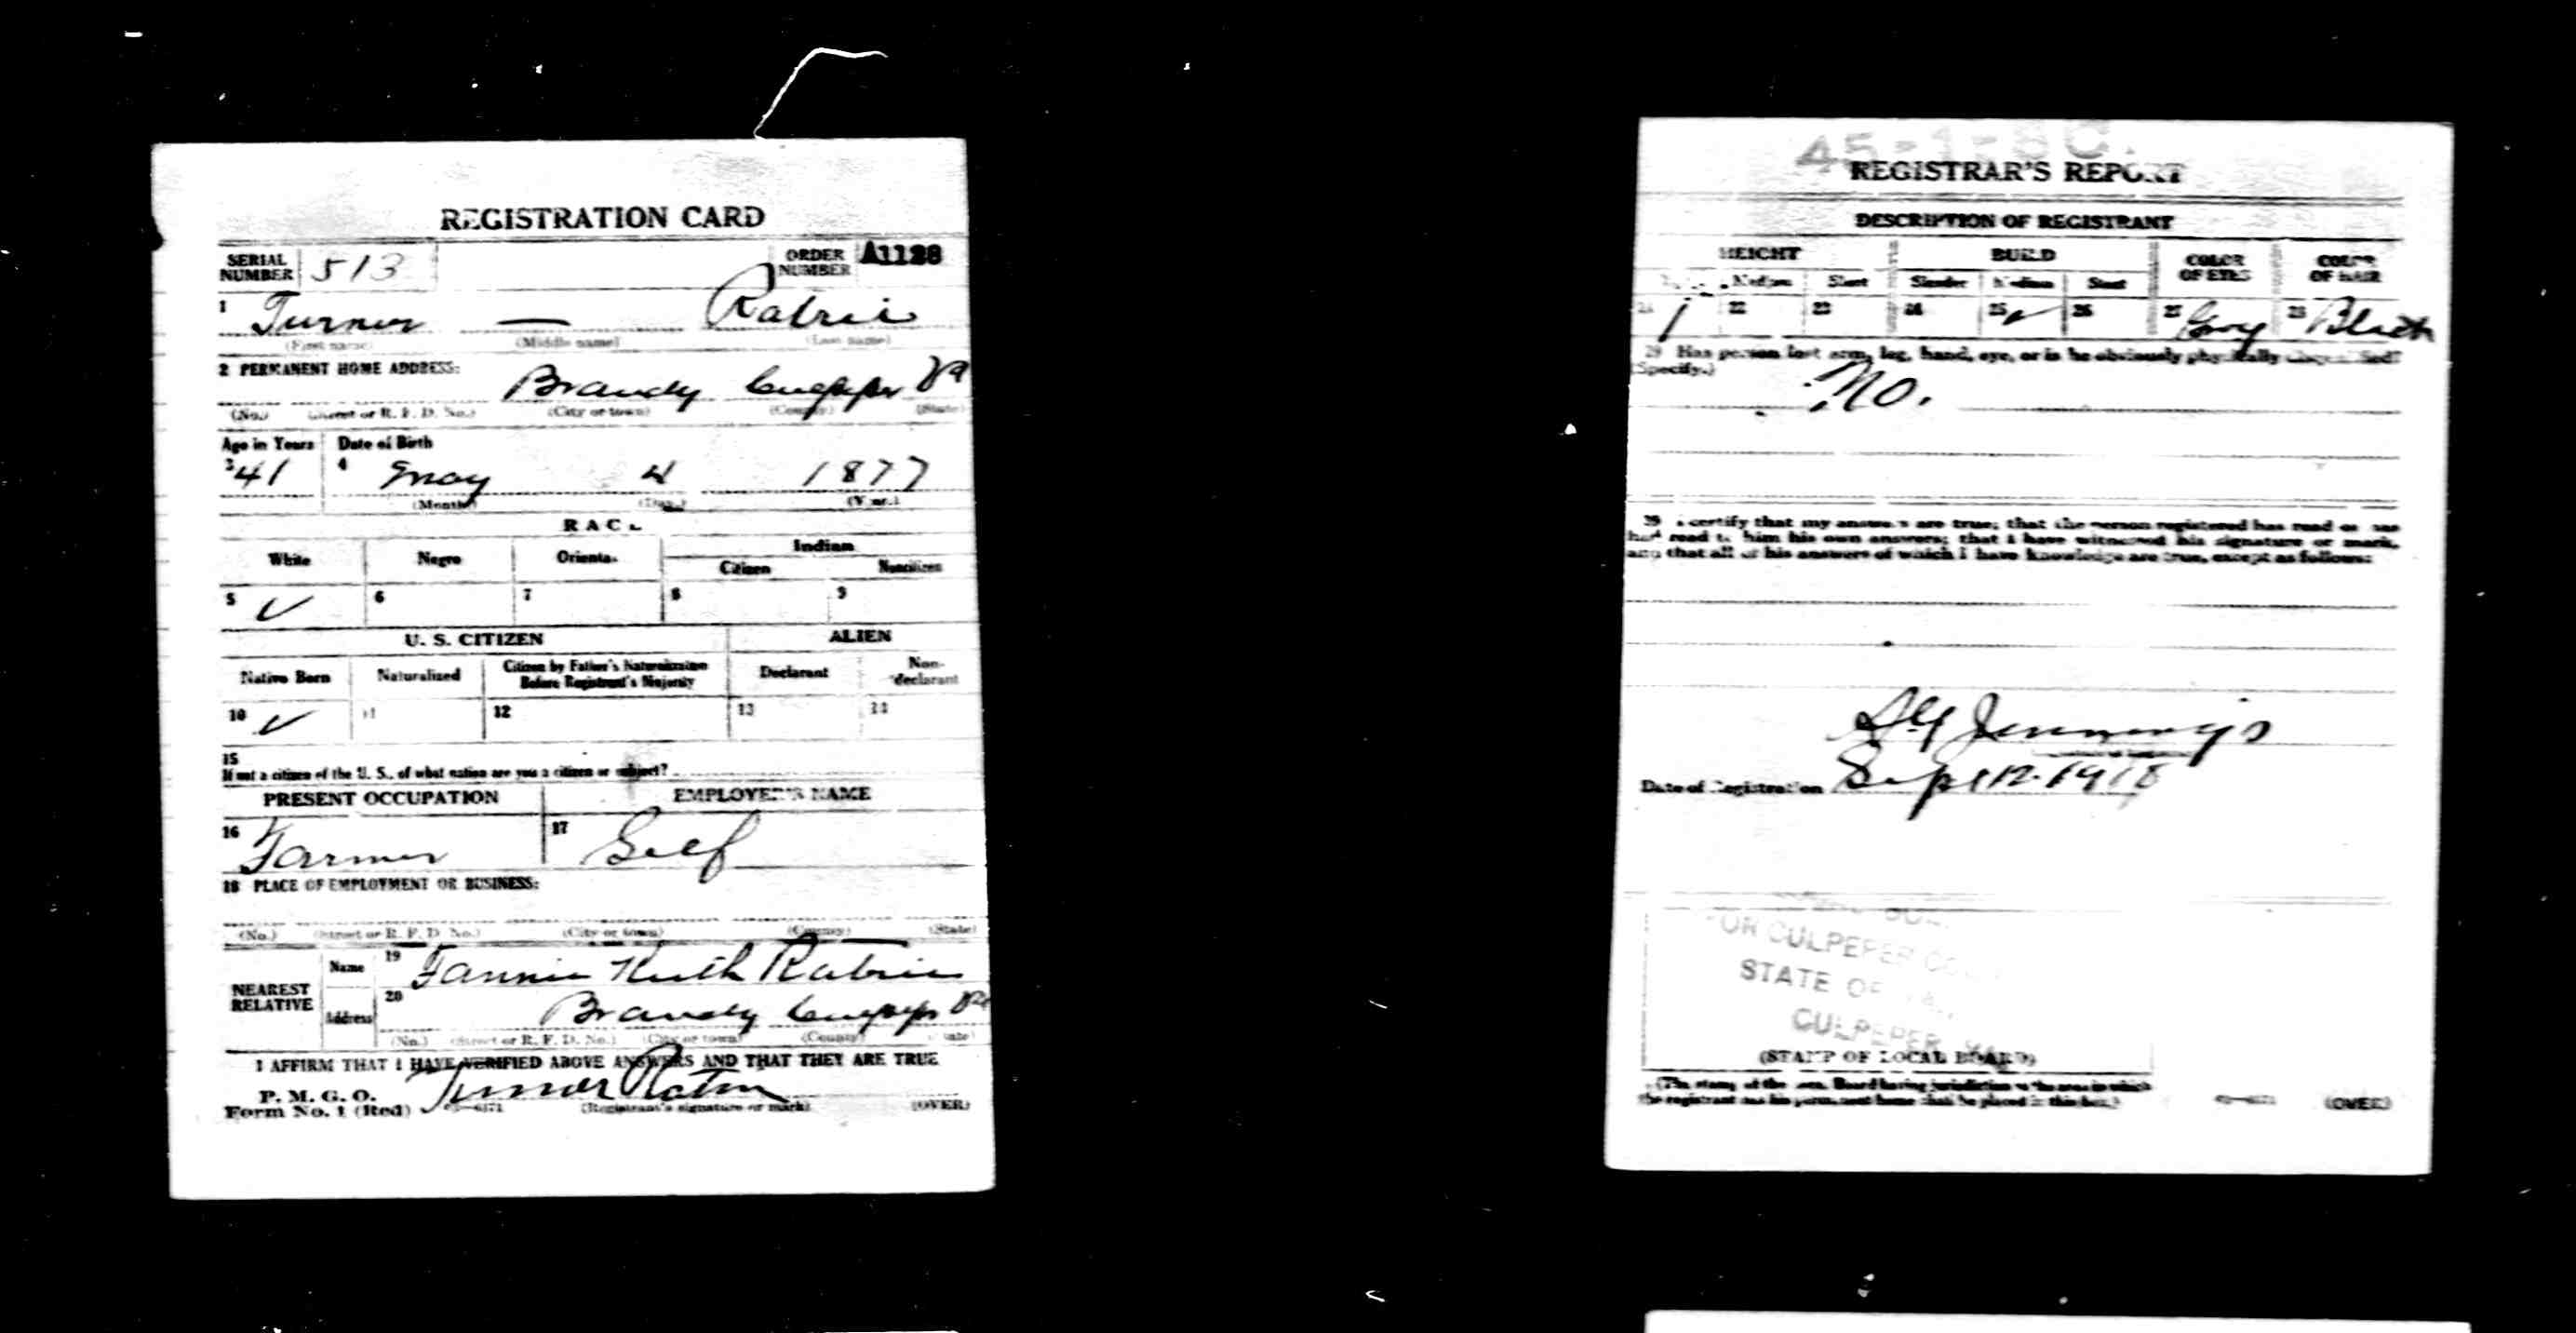 REGISTRATION CARD
SERIAL NUMBER 513 ORDER NUMBER A1128
1 Turner — Ratrie
(First name) (Middle name) (Last name)
2 PERMANENT HOME ADDRESS:
Brandy Culpeper Va
(No.) (Street or R. F. D. No.) (City or town) (County) (State)
Age in Years Date of Birth
3 41 4 May 4 1877
(Month) (Day) (Year)
RACE
White Negro Oriental Indian
Citizen Noncitizen
5 ✓ 6 7 8 9
U. S. CITIZEN ALIEN
Native Born Naturalized Citizen by Father's Naturalization Before Registrant's Majority Declarant Non-declarant
10 ✓ 11 12 13 14
15
If not a citizen of the U. S., of what nation are you a citizen or subject?
PRESENT OCCUPATION EMPLOYER'S NAME
16 Farmer 17 Self
18 PLACE OF EMPLOYMENT OR BUSINESS:
(No.) (Street or R. F. D. No.) (City or town) (County) (State)
NEAREST RELATIVE Name 19 Fannie Ruth Ratrie
Address 20 Brandy Culpeper Va
(No.) (Street or R. F. D. No.) (City or town) (County) (State)
I AFFIRM THAT I HAVE VERIFIED ABOVE ANSWERS AND THAT THEY ARE TRUE
P. M. G. O.
Form No. 1 (Red) Turner (Registrant's signature or mark) (OVER)
45-1-8 C.
REGISTRAR'S REPORT
DESCRIPTION OF REGISTRANT
HEIGHT BUILD COLOR OF EYES COLOR OF HAIR
Medium Short Slender Medium Stout
21 / 22 23 24 25 ✓ 26 27 Grey 28 Black
29 Has person lost arm, leg, hand, eye, or is he obviously physically disqualified?
(Specify.) No.
30 I certify that my answers are true; that the person registered has read or has
had read to him his own answers; that I have witnessed his signature or mark,
and that all of his answers of which I have knowledge are true, except as follows:
Jennings
Date of Registration Sept 12-1918
FOR CULPEPER
STATE OF
CULPEPER VA.
(STAMP OF LOCAL BOARD)
(The stamp of the Local Board having jurisdiction of the area in which
the registrant has his permanent home shall be placed in this box.) (OVER)